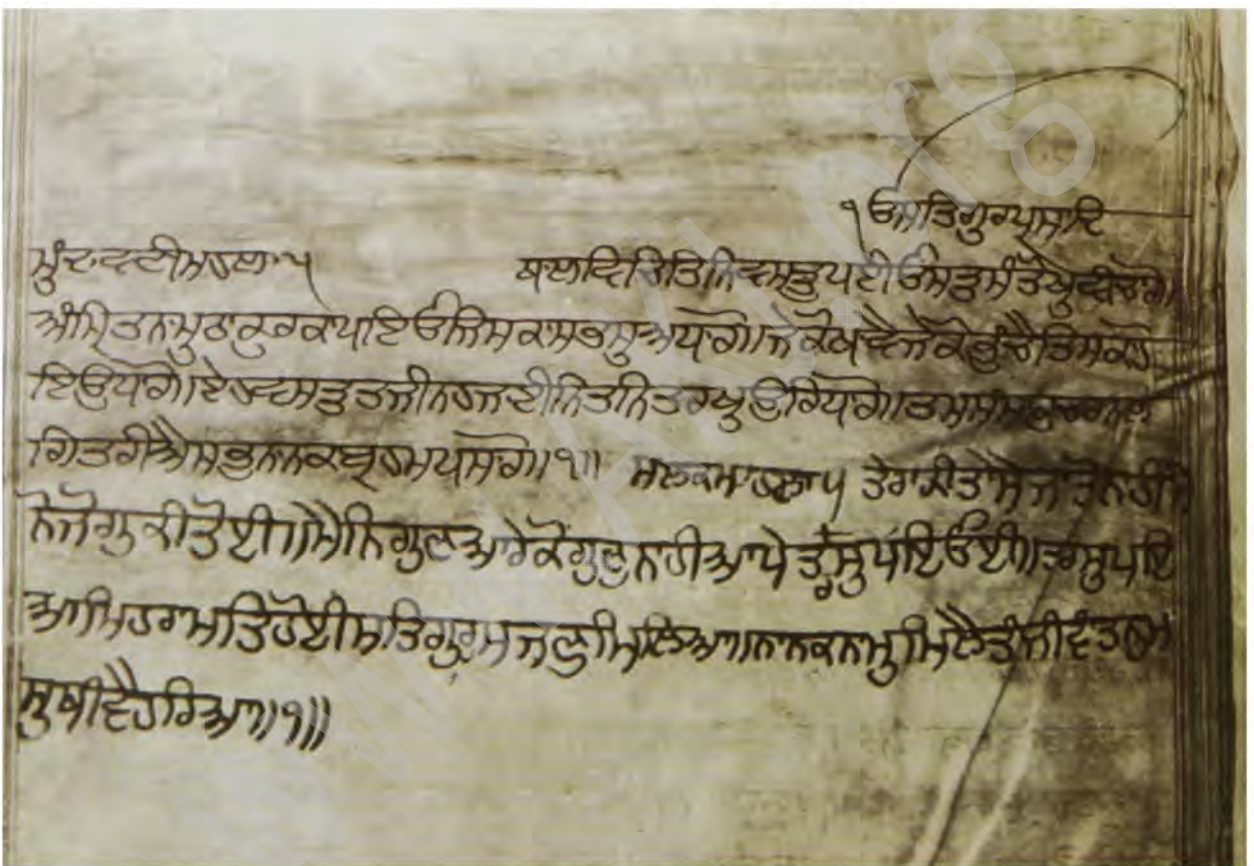 ੧ ਓਸਤਿਗੁਰਪ੍ਰਸਾਦਿ
ਮੁੰਦਾਵਣੀਮਹਲਾ੫ ਥਾਲਵਿਚਿਤਿਨਿਵਸਤੁਪਈਓਸਤੁਸੰਤੋਖੁਵੀਚਾਰੋ॥
ਅੰਮ੍ਰਿਤਨਾਮੁਠਾਕੁਰਕਾਪਾਇਓਜਿਸਕਾਸਭਸੁਅਧਾਰੋ॥ਜੇਕੋਖਾਵੈਜੇਕੋਭੁੰਚੈਤਿਸਕਾਹੋ
ਇਉਧਾਰੋ॥ਏਹਵਸਤੁਤਜੀਨਹਜਾਈਨਿਤਨਿਤਰਖੁਉਰਿਧਾਰੋ॥ਤਮਸੰਸਾਰੁਚਰਨਲ
ਗਿਤਰੀਐਸਭੁਨਾਨਕਬ੍ਰਹਮਪਸਾਰੋ॥੧॥ ਸਲੋਕਮਹਲਾ੫ ਤੇਰਾਕੀਤਾਜਾਤੋਨਹੀਮੈ
ਨੋਜੋਗੁਕੀਤੋਈ॥ਮੈਨਿਗੁਣਆਰੇਕੋਗੁਣੁਨਹੀਆਪੇਤਰਸੁਪਇਓਈ॥ਤਰਸੁਪਇ
ਆਮਿਹਰਾਮਤਿਹੋਈਸਤਿਗੁਰੁਸਜਣੁਮਿਲਿਆ॥ਨਾਨਕਨਾਮੁਮਿਲੈਤਾਂਜੀਵਾਂਤਨੁਮ
ਨੁਥੀਵੈਹਰਿਆ॥੧॥